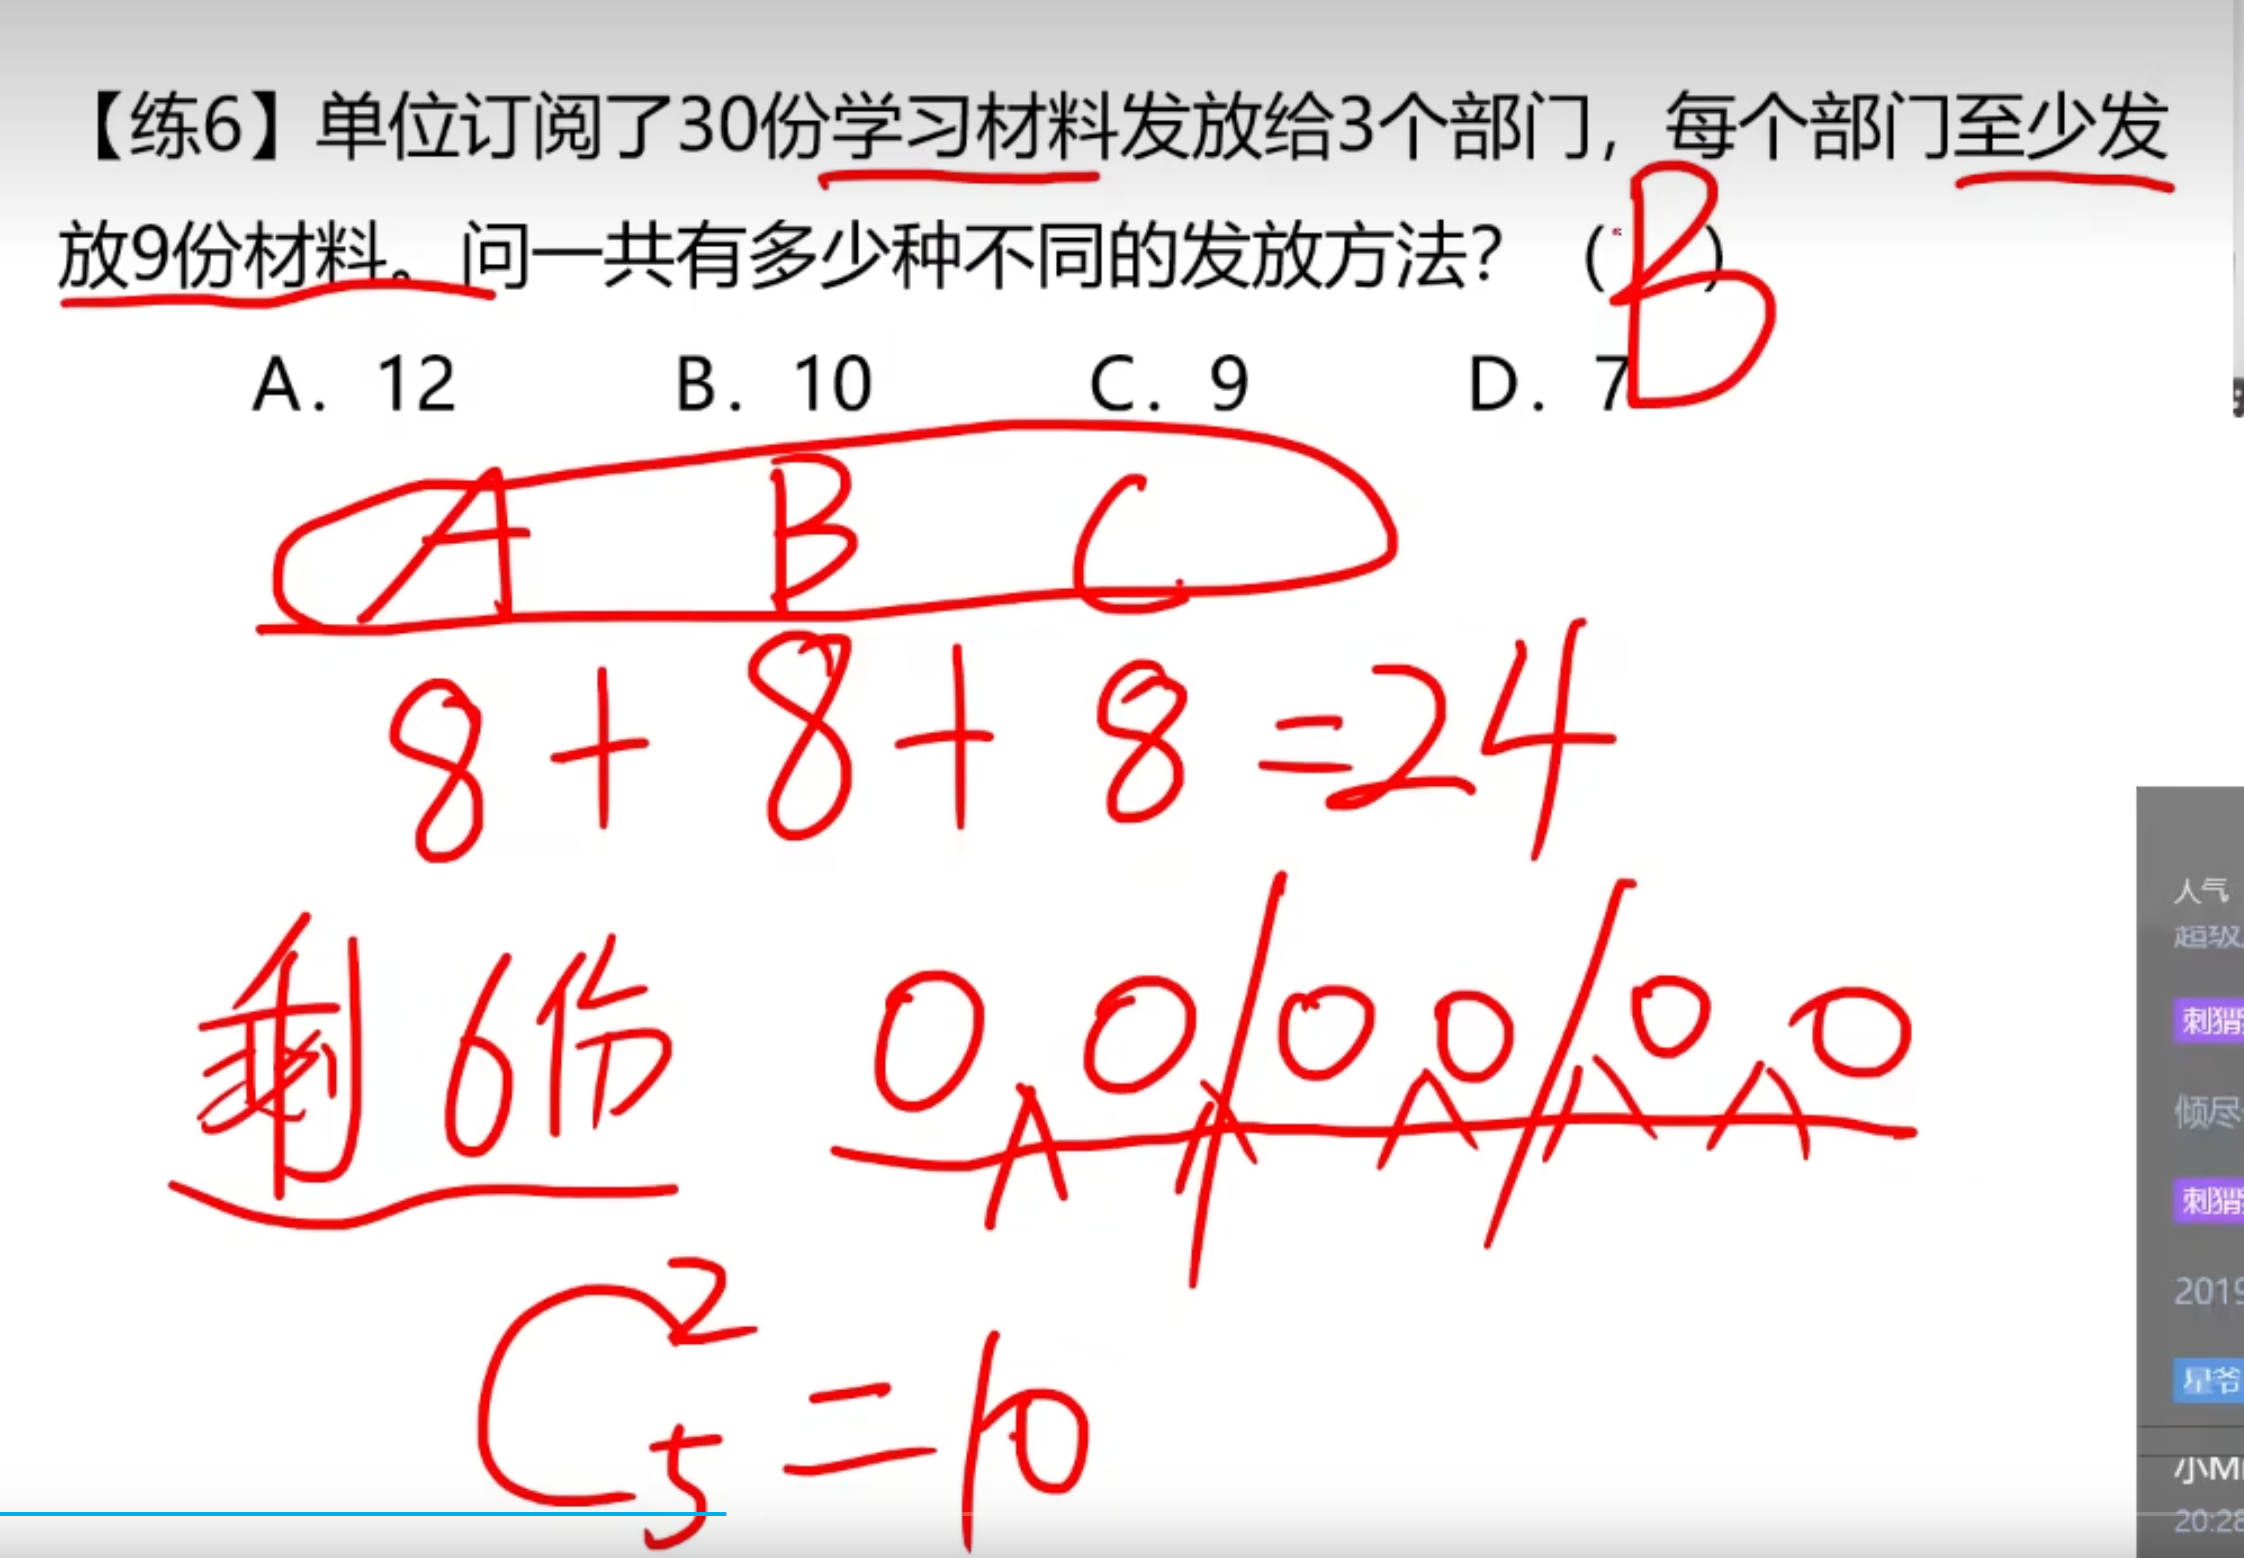 【练6】单位订阅了30份学习材料发放给3个部门，每个部门至少发
放9份材料。问一共有多少种不同的发放方法？（ ）
B
A. 12 B. 10 C. 9 D. 7
A B C
8+8+8=24
剩6份 0 0/0 0/0 0
C₅²=10
人气
超级
刺猬
倾尽
刺猬
2019
星爷
小M
20:28